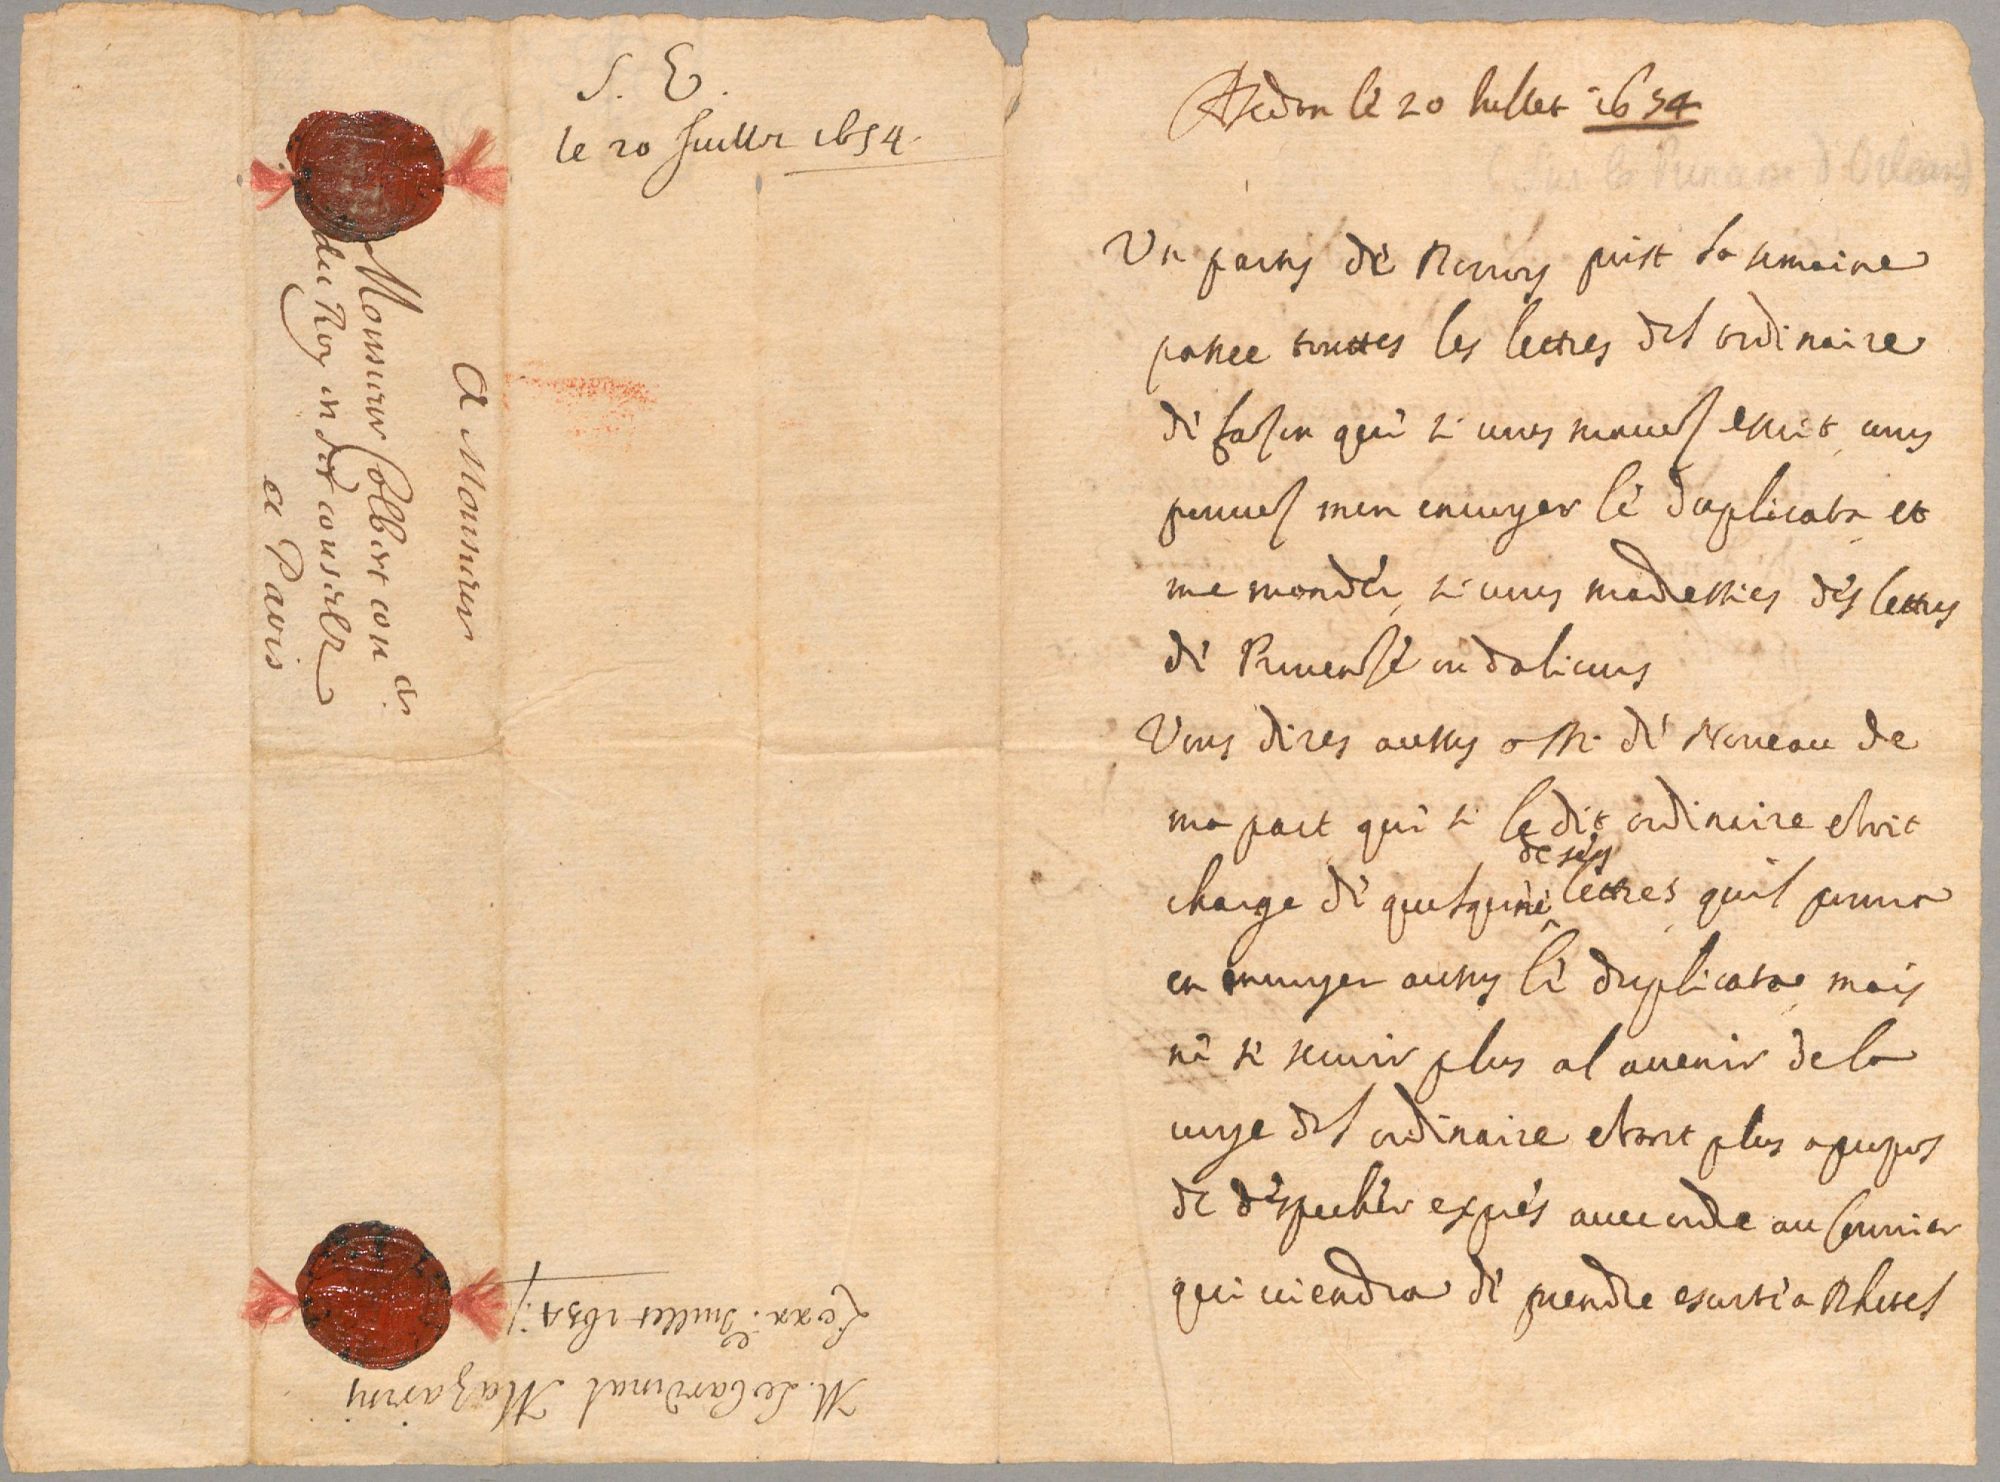 S. E.
le 20 Juillet 1654.
A Monsieur
Monsieur Colbert con.er
du Roy en ses conseils
a Paris
M. Le Cardinal Mazarin
Juillet 1654.
A Sedan le 20 Jullet 1654
(Sur la d'Orleans)
Un partis dè Rocroy prist la semaine
passee touttes les lettres del ordinaire
dè fason què si vous mavez escrit vous
pouvez men envoyer lè duplicata et
me mander si vous madressies dés lettres
dè Provensè ou dalieurs
Vous dires aussy a Mr dè Noueau de
ma part què si le dit ordinaire estoit
charge dè quelqune de sés lettres quil pourra
en envoyer aussy lè duplicata mais
nè sè servir plus al avenir de la
voye del ordinaire estant plus a propos
de déspecher exprés avec ordre au courrier
qui viendra dè prendre escorte a Rhetel